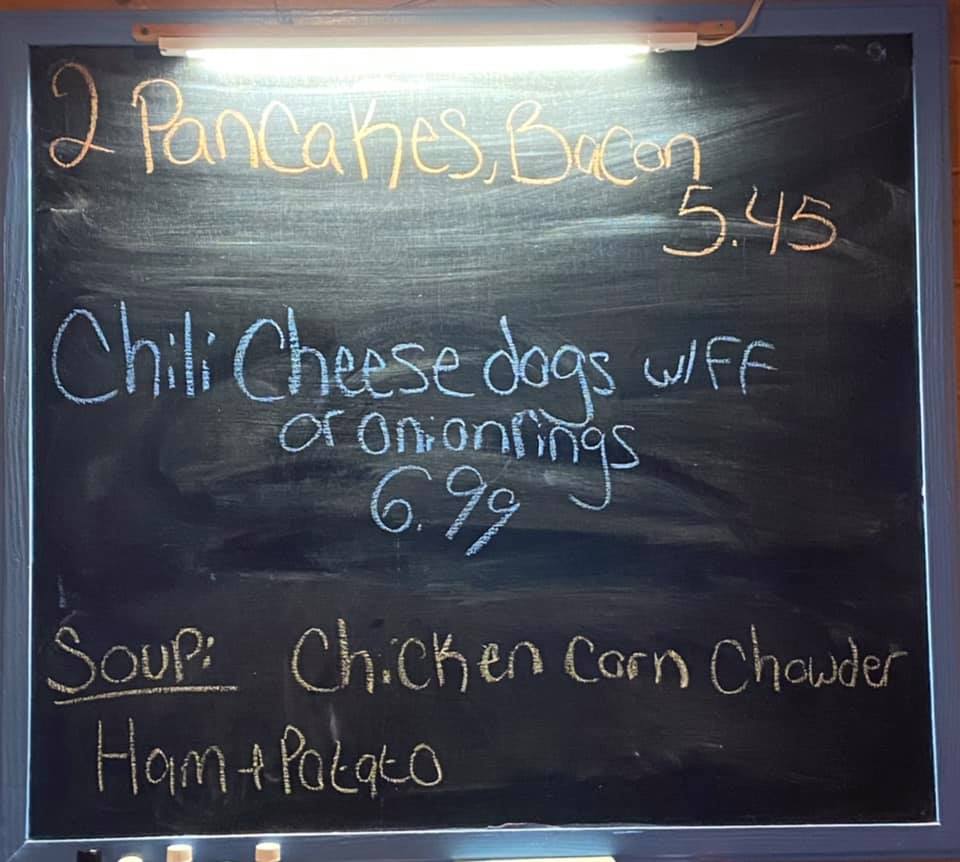 2 Pancakes, Bacon
5.45
Chili Cheese dogs w/FF
or onion rings
6.99
Soup: Chicken Corn Chowder
Ham + Potato